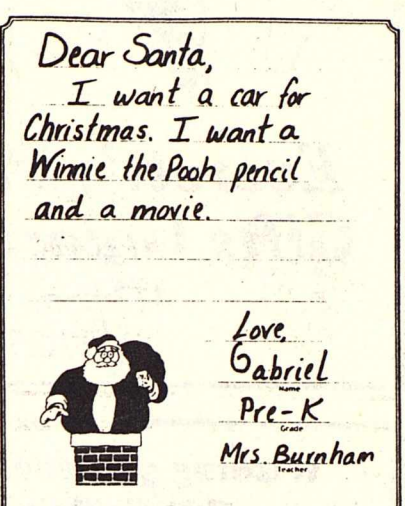 Dear Santa,
I want a car for
Christmas. I want a
Winnie the Pooh pencil
and a movie.
Love,
Gabriel
Name
Pre-K
Grade
Mrs. Burnham
Teacher